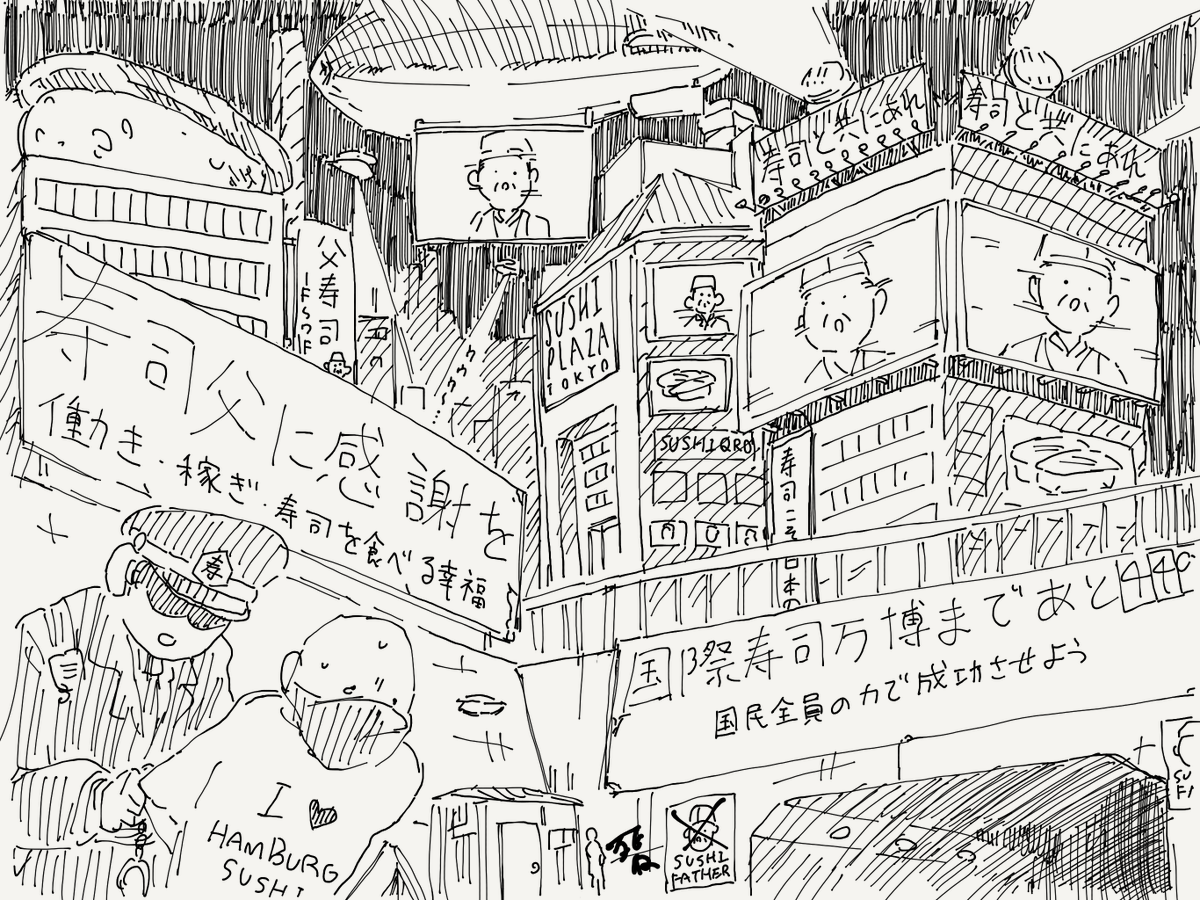 寿司と共にあれ
寿司と共にあれ
父寿司
SUSHI
PLAZA
TOKYO
SUSHIQRO
寿司こそ
日本の
寿司父に感謝を
働き・稼ぎ・寿司を食べる幸福
国際寿司万博まであと
国民全員の力で成功させよう
寿
I ♥
HAMBURG
SUSHI
SUSHI
FATHER
SU